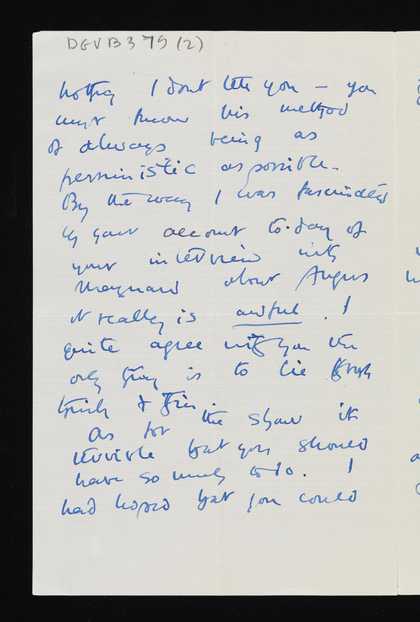 DGVB 379 (2)
nothing I dont tell you – you
must know his method
of always being as
pessimistic as possible.
By the way I was fascinated
by your account to-day of
your interview with
Maynard about Angus
it really is awful. I
quite agree with you the
only thing is to lie through
thick & thin.
As for the show it
terrible that you should
have so much to do. I
had hoped that you could